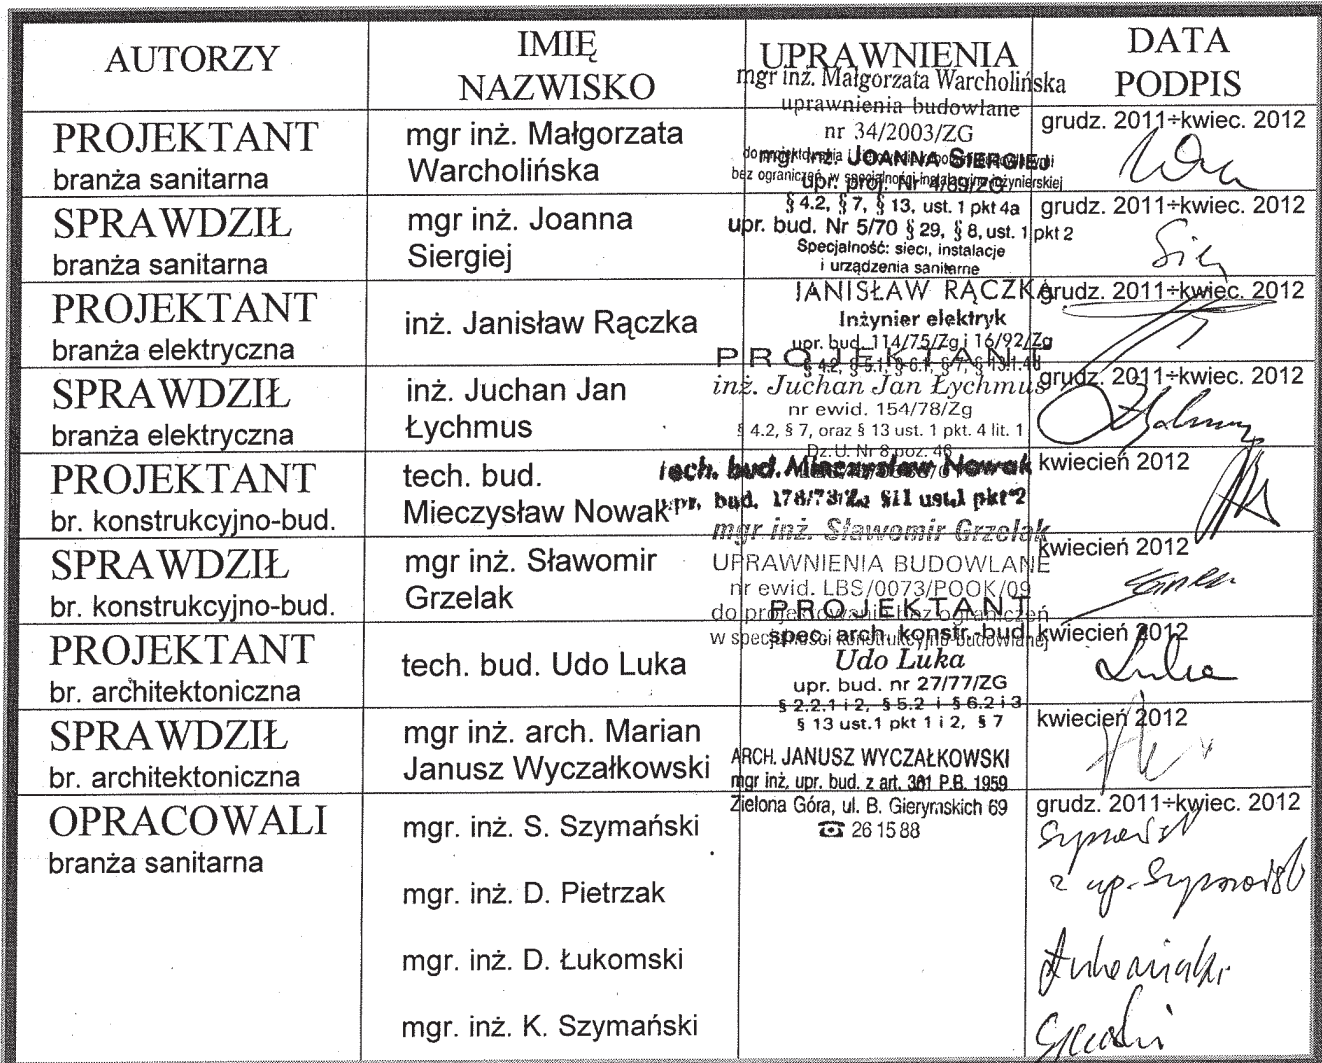 AUTORZY
IMIĘ
NAZWISKO
UPRAWNIENIA
DATA
PODPIS
PROJEKTANT
branża sanitarna
mgr inż. Małgorzata
Warcholińska
mgr inż. Małgorzata Warcholińska
uprawnienia budowlane
nr 34/2003/ZG
bez ograniczeń w specjalności instalacyjno-inżynierskiej
grudz. 2011÷kwiec. 2012
SPRAWDZIŁ
branża sanitarna
mgr inż. Joanna
Siergiej
mgr inż. JOANNA SIERGIEJ
upr. proj. Nr 4/89/ZG
§ 4.2, § 7, § 13, ust. 1 pkt 4a
upr. bud. Nr 5/70 § 29, § 8, ust. 1 pkt 2
Specjalność: sieci, instalacje
i urządzenia sanitarne
grudz. 2011÷kwiec. 2012
PROJEKTANT
branża elektryczna
inż. Janisław Rączka
JANISŁAW RĄCZKA
Inżynier elektryk
upr. bud. 114/75/Zg i 16/92/Zg
grudz. 2011÷kwiec. 2012
SPRAWDZIŁ
branża elektryczna
inż. Juchan Jan
Łychmus
PROJEKTANT
inż. Juchan Jan Łychmus
nr ewid. 154/78/Zg
§ 4.2, § 7, oraz § 13 ust. 1 pkt. 4 lit. 1
Dz.U. Nr 8 poz. 46
grudz. 2011÷kwiec. 2012
PROJEKTANT
br. konstrukcyjno-bud.
tech. bud.
Mieczysław Nowak
tech. bud. Mieczysław Nowak
upr. bud. 178/78/Zg §11 ust.1 pkt 2
kwiecień 2012
SPRAWDZIŁ
br. konstrukcyjno-bud.
mgr inż. Sławomir
Grzelak
mgr inż. Sławomir Grzelak
UPRAWNIENIA BUDOWLANE
nr ewid. LBS/0073/POOK/09
do projektowania bez ograniczeń
w specjalności konstrukcyjno-budowlanej
kwiecień 2012
PROJEKTANT
br. architektoniczna
tech. bud. Udo Luka
PROJEKTANT
spec. arch. konstr.-bud.
Udo Luka
upr. bud. nr 27/77/ZG
§ 2.2.1 i 2, § 5.2 i § 6.2 i 3
§ 13 ust.1 pkt 1 i 2, § 7
kwiecień 2012
SPRAWDZIŁ
br. architektoniczna
mgr inż. arch. Marian
Janusz Wyczałkowski
ARCH. JANUSZ WYCZAŁKOWSKI
mgr inż. upr. bud. z art. 361 P.B. 1959
Zielona Góra, ul. B. Gierymskich 69
☎ 26 15 88
kwiecień 2012
OPRACOWALI
branża sanitarna
mgr. inż. S. Szymański
mgr. inż. D. Pietrzak
mgr. inż. D. Łukomski
mgr. inż. K. Szymański
grudz. 2011÷kwiec. 2012